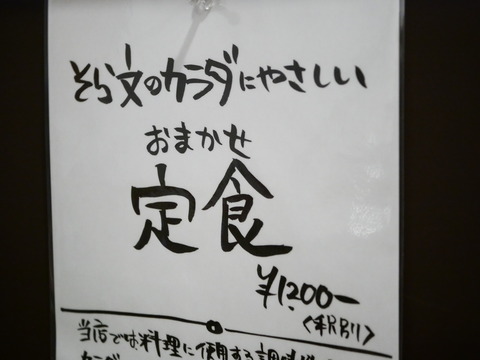 そら文のカラダにやさしい
おまかせ
定食
¥1,200-
<税別>
当店では料理に使用する調味